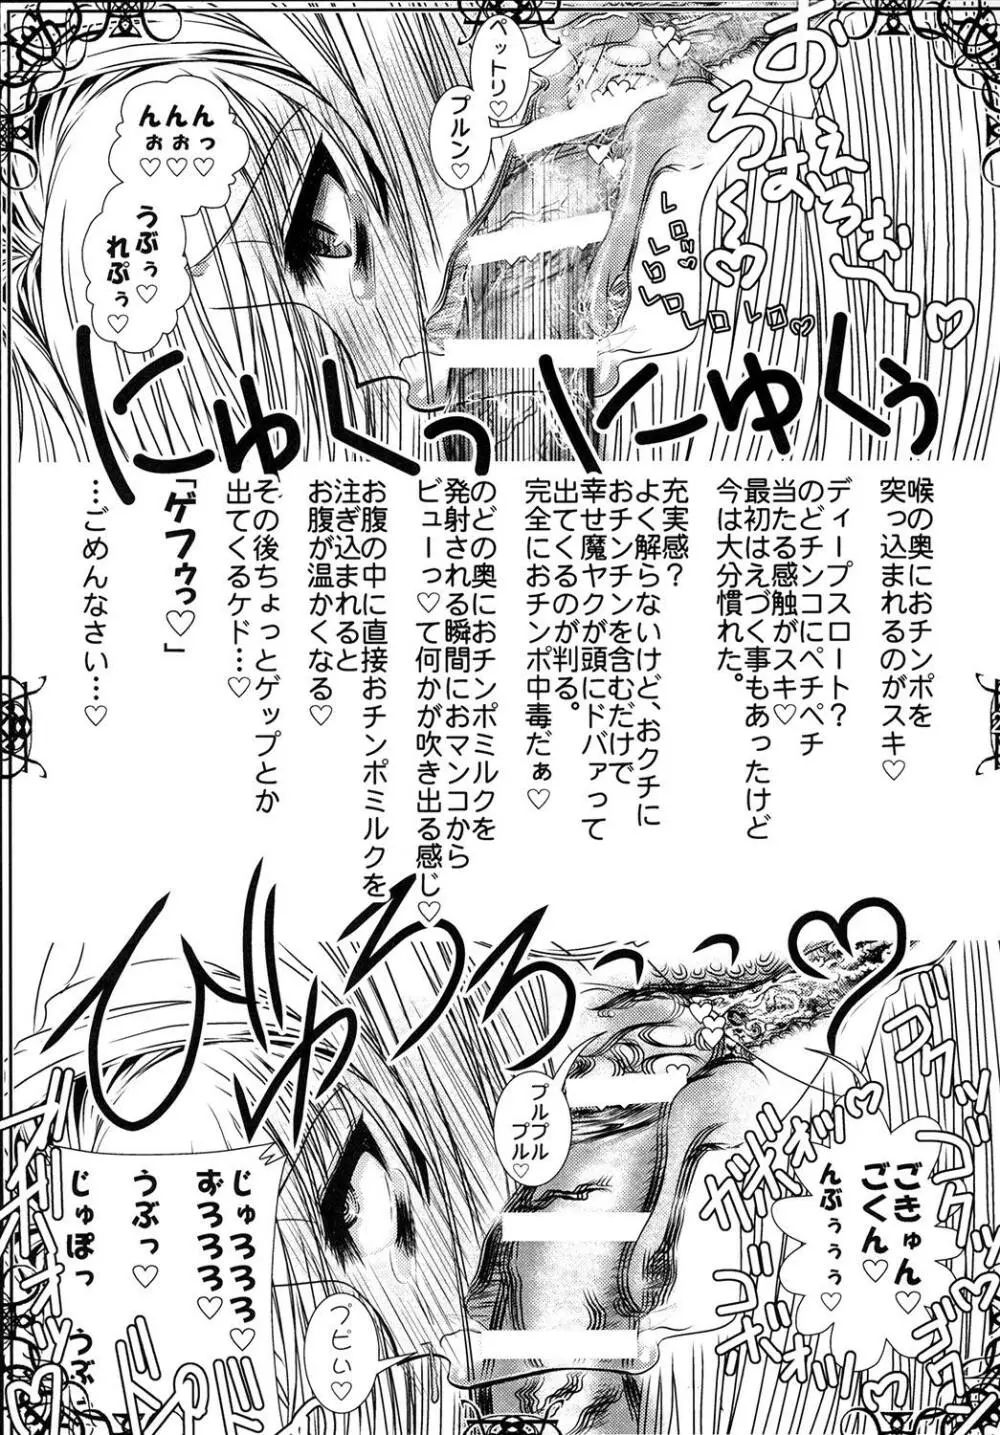 おえろぉ〜
ろおぉ〜く♡
ペットリ♡
プルン♡
レロッ♡
レロレロ
レロレロレロ♡
んんんっ
ぉぉ
♡♡♡
うぶぅ♡
れぷぅ♡
にゅくっにゅくぅ
喉の奥におチンポを
突っ込まれるのがスキ♡
ディープスロート?
のどチンコにペチペチ
当たる感触がスキ♡
最初はえづく事もあったけど
今は大分慣れた。
充実感?
よく解らないけど、おクチに
おチンチンを含むだけで
幸せ魔ヤクが頭にドバァって
出てくるのが判る。
完全におチンポ中毒だぁ♡
のどの奥におチンポミルクを
発射される瞬間におマンコから
ビューーっ♡て何かが吹き出る感じ♡
お腹の中に直接おチンポミルクを
注ぎ込まれると
お腹が温かくなる♡
その後ちょっとゲップとか
出てくるケド…♡
「ゲフゥっ♡」
…ごめんなさい…♡
びゅろろーっっ♡
ゴクッ
ゴクッ
プルプル
プル♡
ごきゅん♡
ごくん♡
んぶぅぅぅ♡
ガボォッ♡
ゴボォッ
じゅろろろ♡
ずろろろ♡
うぶっ♡
じゅぽっ
うぶ
プピぃ♡